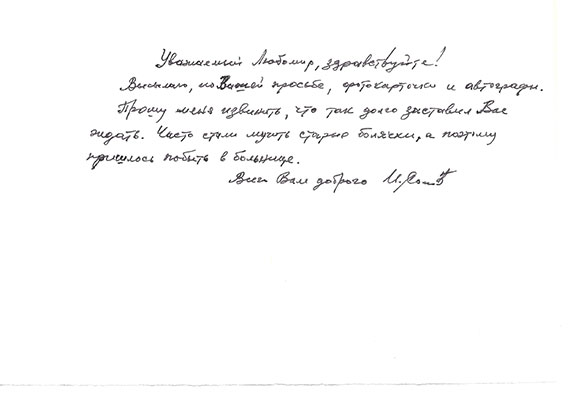 Уважаемый Любомир, здравствуйте!
Высылаю, по Вашей просьбе, фотокарточки и автографы.
Прошу меня извинить, что так долго заставил Вас
ждать. Часто стали мучить старые болячки, а поэтому
пришлось побыть в больнице.
Всего Вам доброго И.